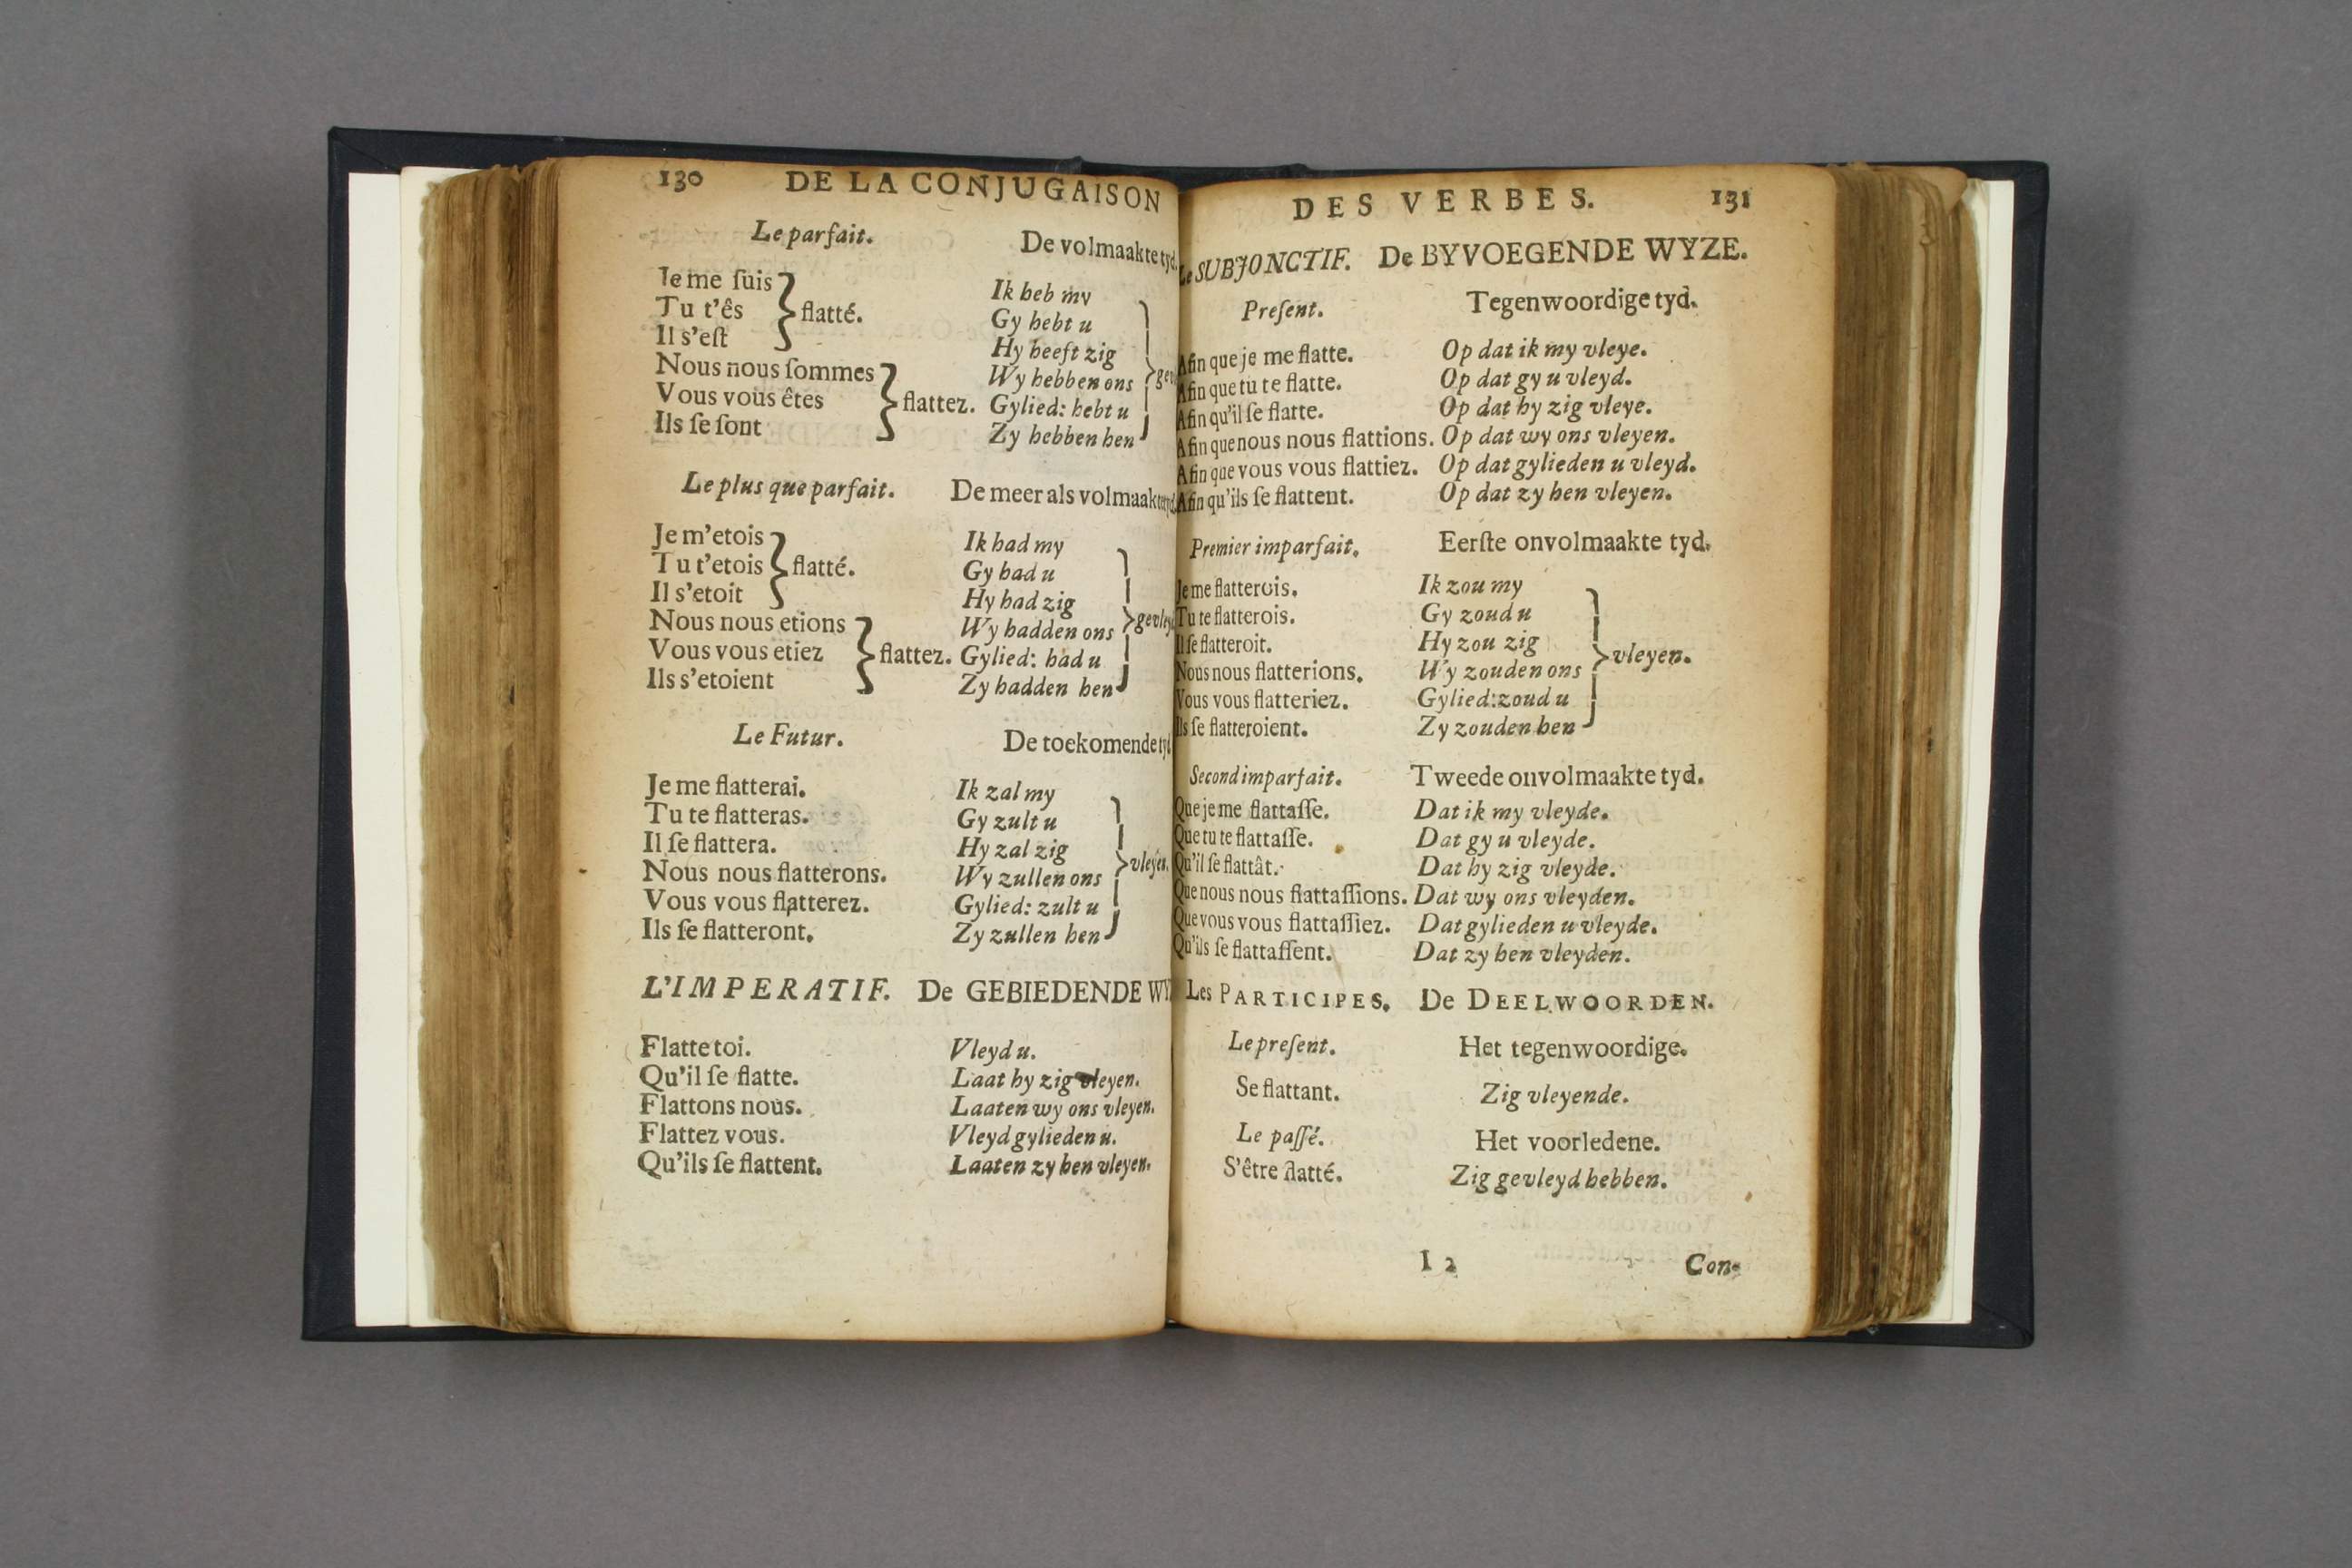 130 DE LA CONJUGAISON
Le parfait. De volmaakte tyd.
Je me ſuis Ik heb my
Tu t'ês flatté. Gy hebt u
Il s'eſt Hy heeft zig
Nous nous ſommes Wy hebben ons
Vous vous êtes flattez. Gylied: hebt u
Ils ſe ſont Zy hebben hen
Le plus que parfait. De meer als volmaakte
Je m'etois Ik had my
Tu t'etois flatté. Gy had u
Il s'etoit Hy had zig
Nous nous etions Wy hadden ons
Vous vous etiez flattez. Gylied: had u
Ils s'etoient Zy hadden hen
Le Futur. De toekomende
Je me flatterai. Ik zal my
Tu te flatteras. Gy zult u
Il ſe flattera. Hy zal zig
Nous nous flatterons. Wy zullen ons vleyen.
Vous vous flatterez. Gylied: zult u
Ils ſe flatteront. Zy zullen hen
L'IMPERATIF. De GEBIEDENDE
Flatte toi. Vleyd u.
Qu'il ſe flatte. Laat hy zig vleyen.
Flattons nous. Laaten wy ons vleyen.
Flattez vous. Vleyd gylieden u.
Qu'ils ſe flattent. Laaten zy hen vleyen.
DES VERBES. 131
Le SUBJONCTIF. De BYVOEGENDE WYZE.
Preſent. Tegenwoordige tyd.
Afin que je me flatte. Op dat ik my vleye.
Afin que tu te flatte. Op dat gy u vleyd.
Afin qu'il ſe flatte. Op dat hy zig vleye.
Afin que nous nous flattions. Op dat wy ons vleyen.
Afin que vous vous flattiez. Op dat gylieden u vleyd.
Afin qu'ils ſe flattent. Op dat zy hen vleyen.
Premier imparfait. Eerſte onvolmaakte tyd.
Je me flatterois. Ik zou my
Tu te flatterois. Gy zoud u
Il ſe flatteroit. Hy zou zig
Nous nous flatterions. Wy zouden ons vleyen.
Vous vous flatteriez. Gylied: zoud u
Ils ſe flatteroient. Zy zouden hen
Second imparfait. Tweede onvolmaakte tyd.
Que je me flattaſſe. Dat ik my vleyde.
Que tu te flattaſſe. Dat gy u vleyde.
Qu'il ſe flattât. Dat hy zig vleyde.
Que nous nous flattaſſions. Dat wy ons vleyden.
Que vous vous flattaſſiez. Dat gylieden u vleyde.
Qu'ils ſe flattaſſent. Dat zy hen vleyden.
Les PARTICIPES. De DEELWOORDEN.
Le preſent. Het tegenwoordige.
Se flattant. Zig vleyende.
Le paſſé. Het voorledene.
S'être flatté. Zig gevleyd hebben.
I 2 Con-